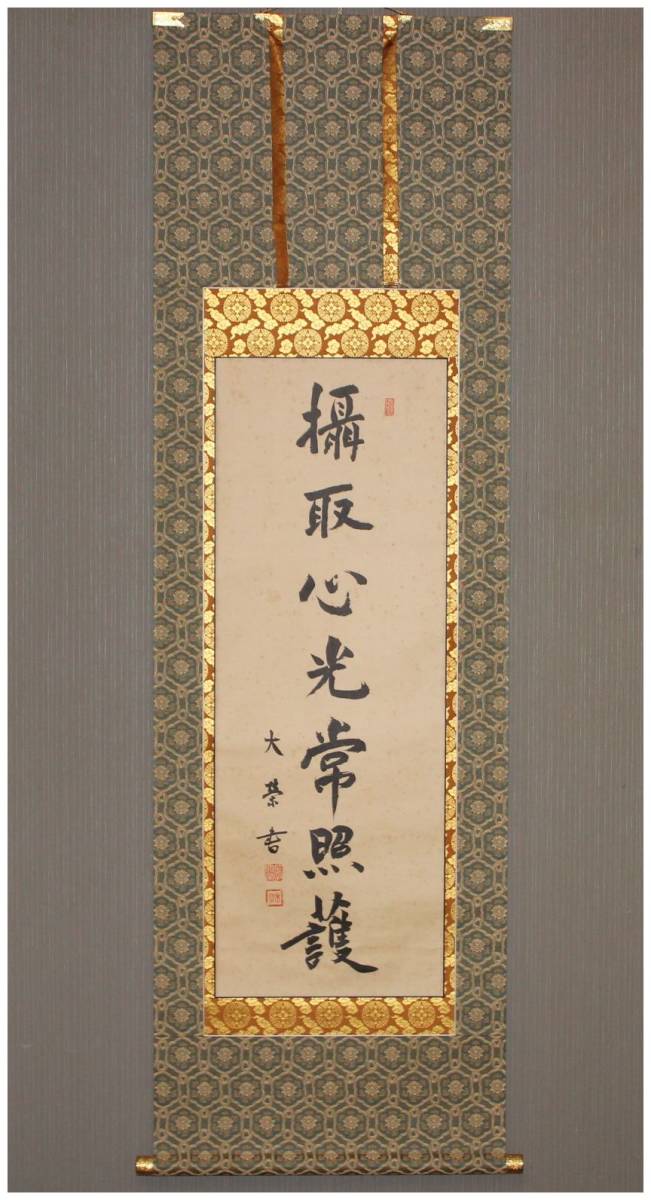 攝取心光常照護
大榮書